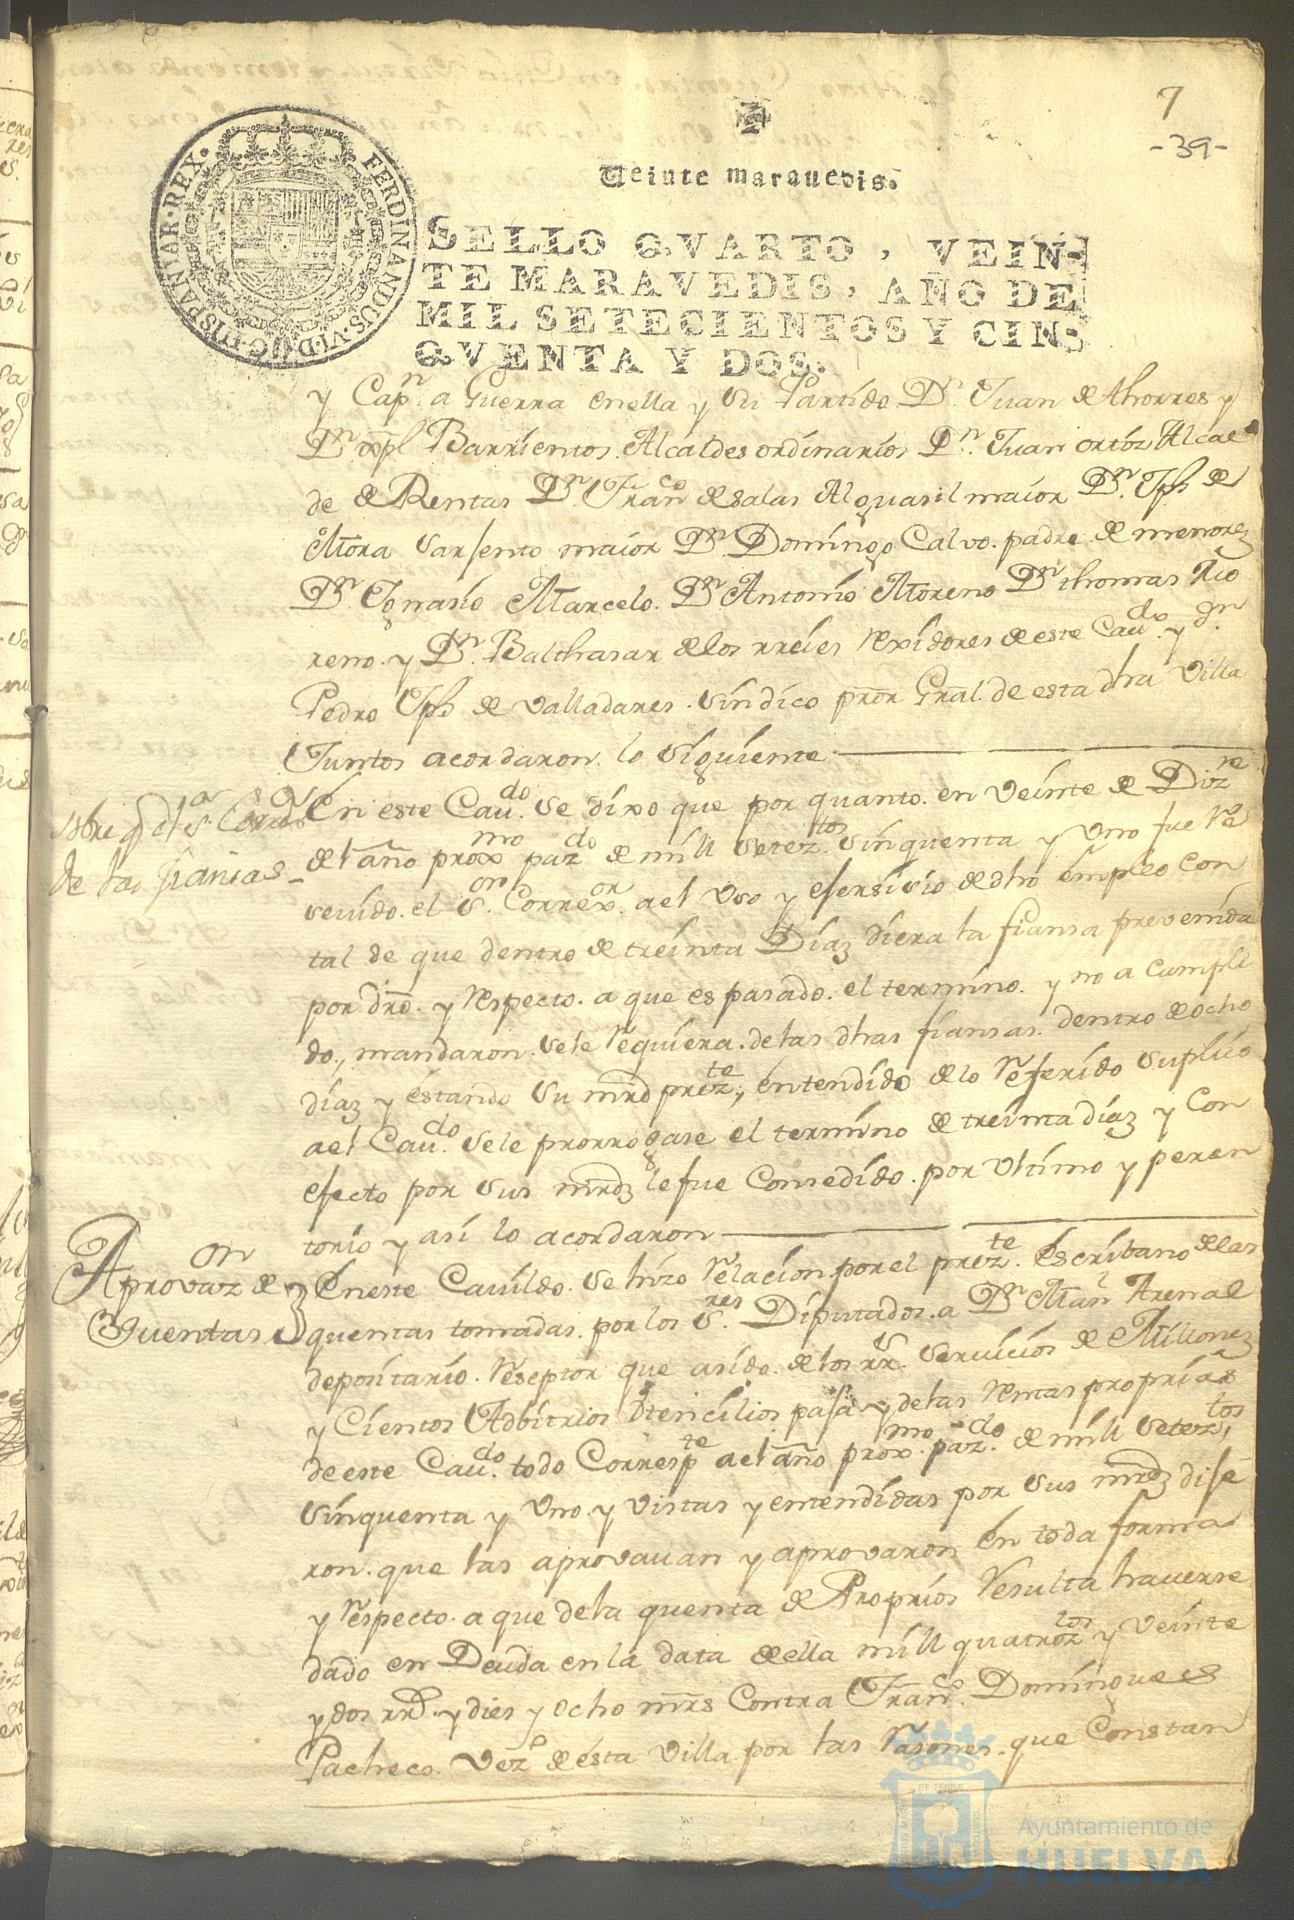 7
-39-
Veinte marauedis.
SELLO QVARTO, VEIN-
TE MARAVEDIS, AÑO DE
MIL SETECIENTOS Y CIN-
QVENTA Y DOS.
FERDINANDUS·VI·D·G·HISPANIAR·REX·
y Capn. a Guerra enella y Su Partido Dn. Juan de thorres y
Dn. xpl Barrientos Alcaldes ordinarios Dn. Juan ortiz Alcae
de de Rentas Dn. Franco de salas Alguasil maior Dn. Jph de
Mora Sarjento maior Dn. Domingo Calvo. padre de menorez
Dn. Ignasio Marcelo. Dn. Antonio Moreno Dn thomas Mo
reno. y Dn. Balthasar de los rreies rexidores de este Caudo. y Dn.
Pedro Jph de valladares. sindico pror Gral. de esta dha villa
Juntos acordaron lo siguiente
sobre q
de las fianzas
En este Caudo. se dixo que por quanto. en veinte de Dizre
del año proxmo pazdo de mill seteztos sinquenta y uno fue Re
sevido. el Sor. Correxor. a el uso y ejersisio de dho empleo con
tal de que dentro de treinta Diaz diera la fiansa prevenida
por dro. y respecto. a que es pasado. el termino. y no a cumpli
do, mandaron. se le requiera. de las dhas fiansas. dentro de ocho
diaz y estando su mrd prezte, entendido de lo referido suplico
a el Caudo. se le prorrogase el termino de treinta diaz y con
efecto por sus mrdz le fue consedido. por ultimo y peren
torio y asi lo acordaron
Aprovazon de
Quentas
En este Cavildo. se hizo relacion por el prezte. escribano de las
quentas tomadas. por los Sres. Diputados. a Dn Manl Arenal
depositario. reseptor que asido. de los rrs. servicios de Millonez
y Cientos Adbitrios Utencilios paja y de las rentas propias
de este Caudo. todo Correspte a el año proxmo. pazdo. de mill seteztos,
sinquenta y uno. y vistas y entendidas por sus mrdz dije
ron. que las aprovavan y aprovaron en toda forma
y respecto. a que de la quenta de Proprios resulta haverse
dado en Deuda en la data de ella mill quatroztos y veinte
y dos rrs. y dies y ocho mrs Contra Franco. Domingues
Pacheco. vezo de esta villa por las rasones. que Constan
Ayuntamiento de
HUELVA